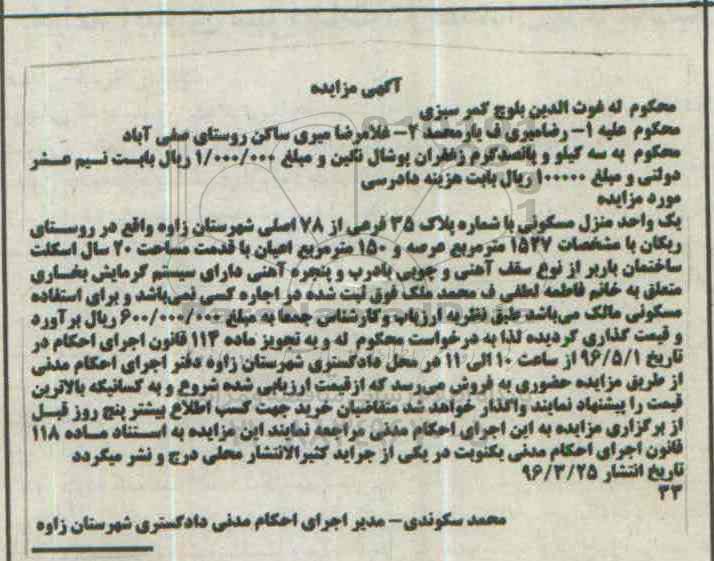 آگهی مزایده
محکوم له غوث الدین بلوچ کمر سبزی
محکوم علیه ۱- رضامیری ف یارمحمد ۲- غلامرضا میری ساکن روستای صفی آباد
محکوم به سه کیلو و پانصدگرم زعفران پوشال نگین و مبلغ ۱/۰۰۰/۰۰۰ ریال بابت نیم عشر
دولتی و مبلغ ۱۰۰۰۰۰ ریال بابت هزینه دادرسی
مورد مزایده
یک واحد منزل مسکونی با شماره پلاک ۳۵ فرعی از ۷۸ اصلی شهرستان زاوه واقع در روستای
ریگان با مشخصات ۱۵۲۷ مترمربع عرصه و ۱۵۰ مترمربع اعیان با قدمت مساحت ۲۰ سال اسکلت
ساختمان باربر از نوع سقف آهنی و چوبی بادرب و پنجره آهنی دارای سیستم گرمایش بخاری
متعلق به خانم فاطمه لطفی ف محمد ملک فوق ثبت شده در اجاره کسی نمی‌باشد و برای استفاده
مسکونی مالک می‌باشد طبق نظریه ارزیاب وکارشناس جمعا به مبلغ ۶۰۰/۰۰۰/۰۰۰ ریال برآورد
و قیمت گذاری گردیده لذا به درخواست محکوم له و به تجویز ماده ۱۱۴ قانون اجرای احکام در
تاریخ ۹۶/۵/۱ از ساعت ۱۰ الی ۱۱ در محل دادگستری شهرستان زاوه دفتر اجرای احکام مدنی
از طریق مزایده حضوری به فروش می‌رسد که ازقیمت ارزیابی شده شروع و به کسانیکه بالاترین
قیمت را پیشنهاد نمایند واگذار خواهد شد متقاضیان خرید جهت کسب اطلاع بیشتر پنج روز قبل
از برگزاری مزایده به این اجرای احکام مدنی مراجعه نمایند این مزایده به استناد ماده ۱۱۸
قانون اجرای احکام مدنی یکنوبت در یکی از جراید کثیرالانتشار محلی درج و نشر میگردد
تاریخ انتشار ۹۶/۳/۲۵
۳۳
محمد سکوندی- مدیر اجرای احکام مدنی دادگستری شهرستان زاوه